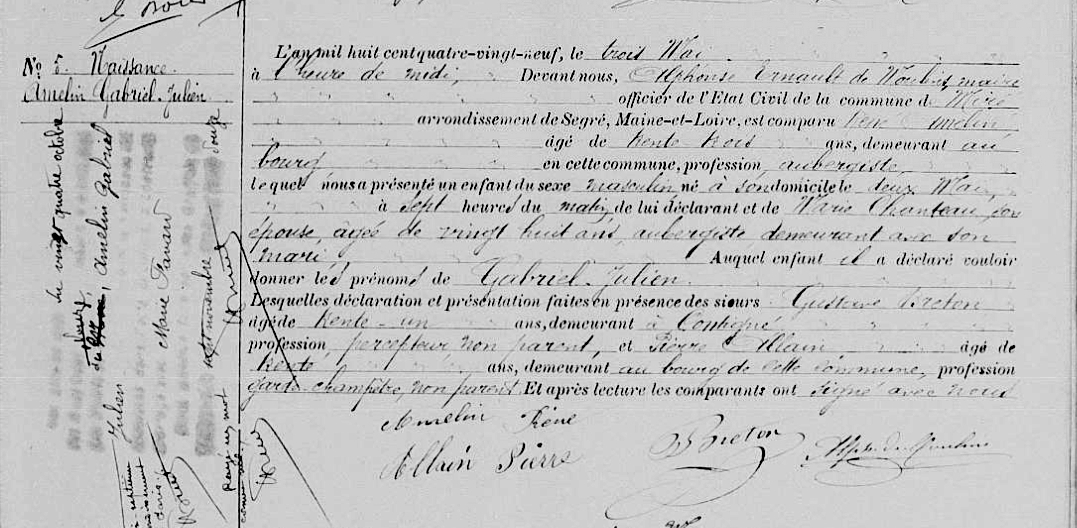 No 5. Naissance
Amelin Gabriel-Julien
L'an mil huit cent quatre-vingt-neuf, le trois Mai
à l'heure de midi, Devant nous, Alphonse Ernault de Moulins, maire
officier de l'Etat Civil de la commune de Miré
arrondissement de Segré, Maine-et-Loire, est comparu René Amelin,
âgé de trente trois ans, demeurant au
bourg en cette commune, profession, aubergiste,
lequel nous a présenté un enfant du sexe masculin né à son domicile le deux Mai,
à sept heures du matin, de lui déclarant et de Marie Chanteau, son
épouse, agée de vingt huit ans, aubergiste, demeurant avec son
mari Auquel enfant il a déclaré vouloir
donner les prénoms de Gabriel-Julien
Lesquelles déclaration et présentation faites en présence des sieurs Gustave Breton
âgé de trente-un ans, demeurant à Contigné
profession, percepteur, non parent, et Pierre Allain, âgé de
trente ans, demeurant au bourg de cette commune, profession
garde-champêtre, non parent. Et après lecture les comparants ont signé avec nous
Amelin Réné
Breton
Allain Pierre
vingt quatre octobre
Amelin Gabriel
Julien
Marie
sept novembre
Rayé un mot